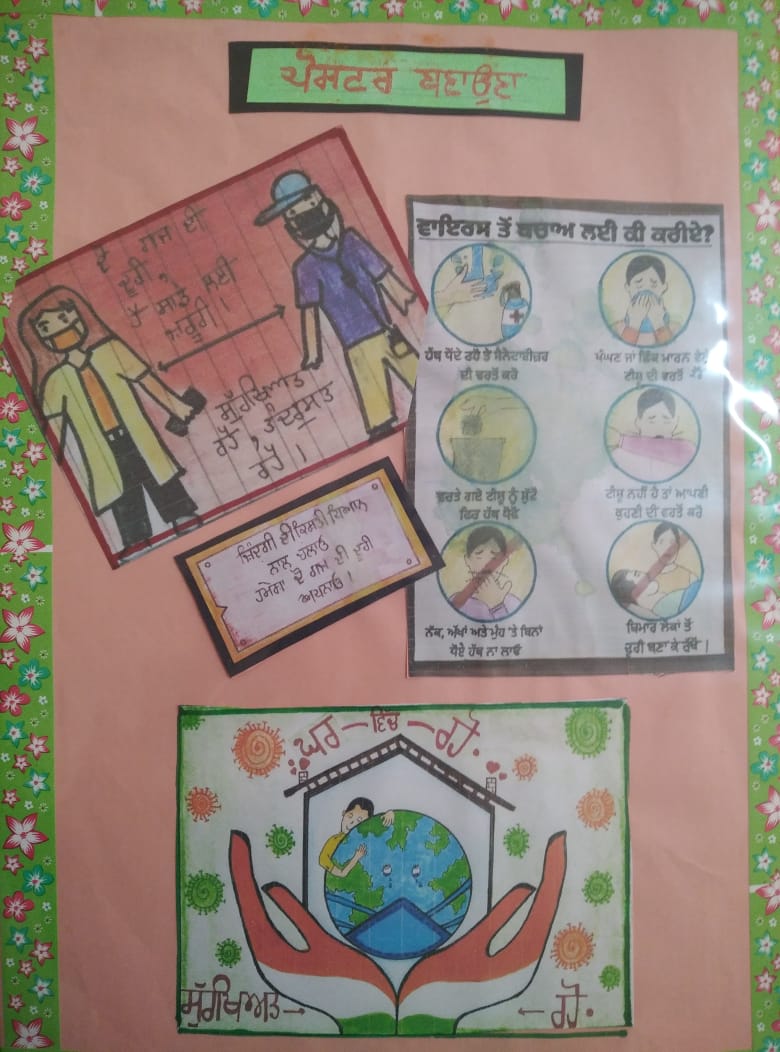 ਪੋਸਟਰ ਬਣਾਉਣਾ
ਦੋ ਗਜ ਦੀ
ਦੂਰੀ,
ਹੈ ਸਾਡੇ ਲਈ
ਜ਼ਰੂਰੀ।
ਸੁੱਰਖਿਅਤ
ਰਹੋ, ਤੰਦਰੁਸਤ
ਰਹੋ।
ਵਾਇਰਸ ਤੋਂ ਬਚਾਅ ਲਈ ਕੀ ਕਰੀਏ?
ਹੱਥ ਧੋਂਦੇ ਰਹੋ ਤੇ ਸੈਨੇਟਾਈਜ਼ਰ
ਦੀ ਵਰਤੋਂ ਕਰੋ
ਖੰਘਣ ਜਾਂ ਛਿੱਕ ਮਾਰਨ ਵੇਲੇ
ਟੀਸ਼ੂ ਦੀ ਵਰਤੋਂ ਕਰੋ
ਵਰਤੇ ਗਏ ਟੀਸ਼ੂ ਨੂੰ ਸੁੱਟੋ
ਫਿਰ ਹੱਥ ਧੋਵੋ
ਟੀਸ਼ੂ ਨਹੀਂ ਹੈ ਤਾਂ ਆਪਣੀ
ਕੂਹਣੀ ਦੀ ਵਰਤੋਂ ਕਰੋ
ਨੱਕ, ਅੱਖਾਂ ਅਤੇ ਮੂੰਹ 'ਤੇ ਬਿਨਾਂ
ਧੋਏ ਹੱਥ ਨਾ ਲਾਓ
ਬਿਮਾਰ ਲੋਕਾਂ ਤੋਂ
ਦੂਰੀ ਬਣਾ ਕੇ ਰੱਖੋ।
ਜ਼ਿੰਦਗੀ ਦੀ ਕਿਸ਼ਤੀ ਧਿਆਨ
ਨਾਲ ਚਲਾਓ
ਹਮੇਸ਼ਾਂ ਦੋ ਗਜ ਦੀ ਦੂਰੀ
ਅਪਨਾਓ।
ਘਰ-ਵਿੱਚ-ਰਹੋ.
ਸੁੱਰਖਿਅਤ→ ←ਰਹੋ.